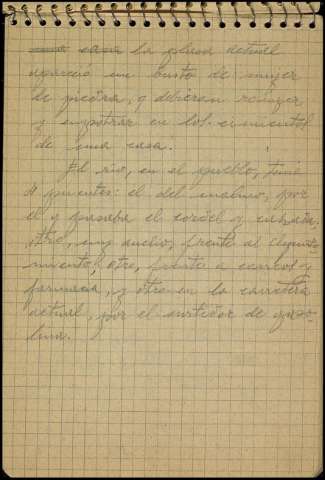 casa la plaza actual
apareció un busto de mujer
de piedra, y debieron romper
y empotrar en los cimientos
de una casa.
El rio, en el pueblo, tenia
4 puentes: el del molino, por
el q pasaba el cordel y cañada.
otro, muy ancho, frente al Ayunta-
miento, otro, frente a
farmacia, y otro en la carretera
actual, por el surtidor de gaso-
lina.